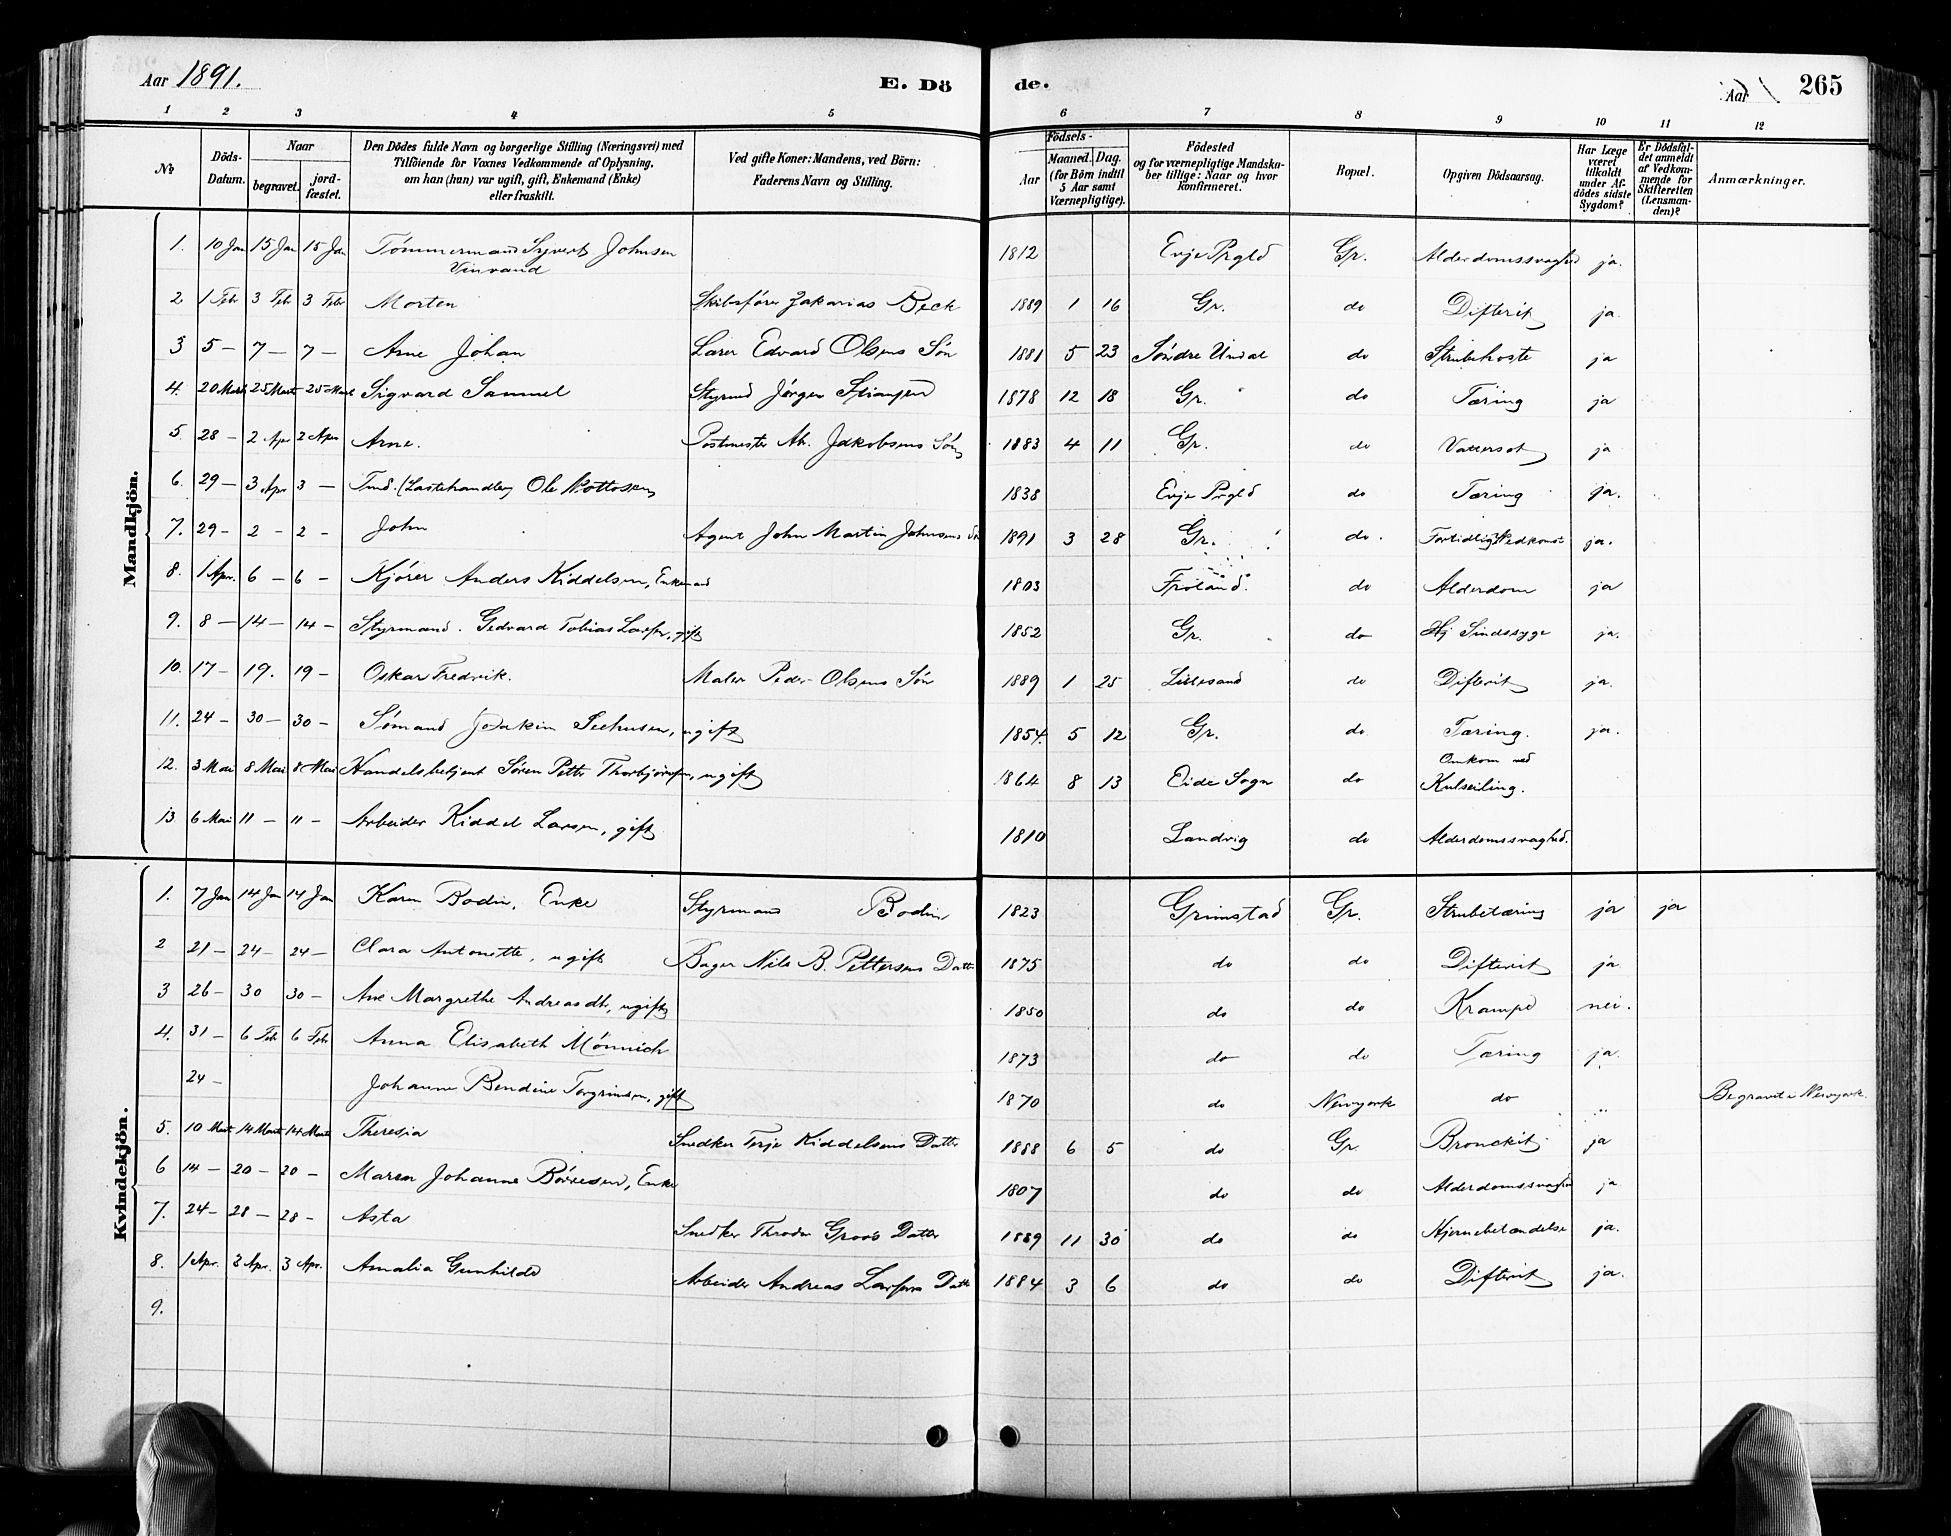 Aar 1891. E. Dö de. Aar 265
1 2 3 4 5 6 7 8 9 10 11 12
No. Döds-Datum. Naar begravet. jordfæstet. Den Dödes fulde Navn og borgerlige Stilling (Næringsvei) med Tilföiende for Voxnes Vedkommende af Oplysning, om han (hun) var ugift, gift, Enkemand (Enke) eller fraskilt. Ved gifte Koner: Mandens, ved Börn: Faderens Navn og Stilling. Födsels- Aar Maaned. Dag. (for Börn indtil 5 Aar samt Værnepligtige). Födested og for værnepligtige Mandskaber tillige: Naar og hvor konfirmeret. Bopæl. Opgiven Dödsaarsag. Har Læge været tilkaldt under Afdödes sidste Sygdom? Er Dödsfaldet anmeldt af Vedkommende for Skifteretten (Lensmanden)? Anmærkninger.
Mandkjön.
1. 10 Jan 15 Jan 15 Jan Tömmermand Syvert Johnsen 1812 Evje Prgld Gr. Alderdomssvaghed ja.
Vinvand
2 1 Feb 3 Feb 3 Feb Morten Skibsförer Zakarias Beck 1889 1 16 Gr. do Difterit ja.
3 5 – 7 – 7 – Arne Johan Lærer Edvard Olsens Sön 1881 5 23 Söndre Undal do Strubehoste ja
4. 20 Marts 25 Marts 25 Marts Sigvard Samuel Styrmd Jörgen 1878 12 18 Gr. do Tæring ja
5. 28 – 2 Apr 2 Apr Arne. Postmester Jakobsens Sön 1883 4 11 Gr. do Vattersot ja
6. 29 – 3 Apr 3 – Ole 1838 Evje Prgld do Tæring ja.
7. 29 – 2 – 2 – John Agent John Martin Johnsens Sön 1891 3 28 Gr. do. Fortidlig Nedkomst ja.
8. 1 Apr. 6 – 6 – Kjörer Anders Kiddelsen, Enkemand 1803 Froland. do Alderdom ja
9. 8 – 14 – 14 – Styrmand. Gedvard Tobias Larsen, gift 1852 Gr. do Sindssyge ja.
10. 17 – 19. 19 – Oskar Fredrik. Maler Peder Olsens Sön 1889 1 25 Lillesand do Difterit ja.
11. 24 – 30 – 30 – Sömand Joakim Seehusen, ugift 1854. 5 12 Gr. do Tæring. ja.
12. 3 Mai 8 Mai 8 Mai Handelsbetjent Sören Petter Thorbjörnsen, ugift 1864 8 13 Eide Sogn do Omkom ved Kulseiling.
13 6 Mai 11 – 11 – Arbeider Kiddel Larsen, gift 1810 Landvig do Alderdomssvaghed.
Kvindekjön.
1. 7 Jan 14 Jan 14 Jan Karen Bodin, Enke Styrmand Bodin 1823 Grimstad Gr. Strubetæring ja ja
2 21 – 24 – 24 – Clara Antonette, ugift Bager Nils B. Pettersens Datter 1875 do do Difterit ja
3 26 – 30 30 – Ane Margrethe Andreasdtr, ugift 1850 do do Krampe nei.
4. 31 – 6 Feb 6 Feb Anna Elisabeth Mönnich 1873 do do Tæring ja.
24 – Johanne Bendine Torgrimsen, gift 1870 do Newyork do Begravet i Newyork.
5. 10 Marts 14 Marts 14 Marts Theresia Snedker Terje Kiddelsens Datter 1888 6 5 do Gr. Bronckit. ja
6 14 – 20 – 20 – Maren Johanne Börresen, Enke 1807 do do Alderdomssvaghed ja
7. 24 – 28 – 28 – Asta Snedker Throder Groos Datter 1889 11 30 do do Hjernebetændelse ja.
8. 1 Apr. 3 Apr. 3 Apr. Amalia Gunhilde Arbeider Andreas Larsens Datter 1884 3 6 do do Difterit ja.
9.